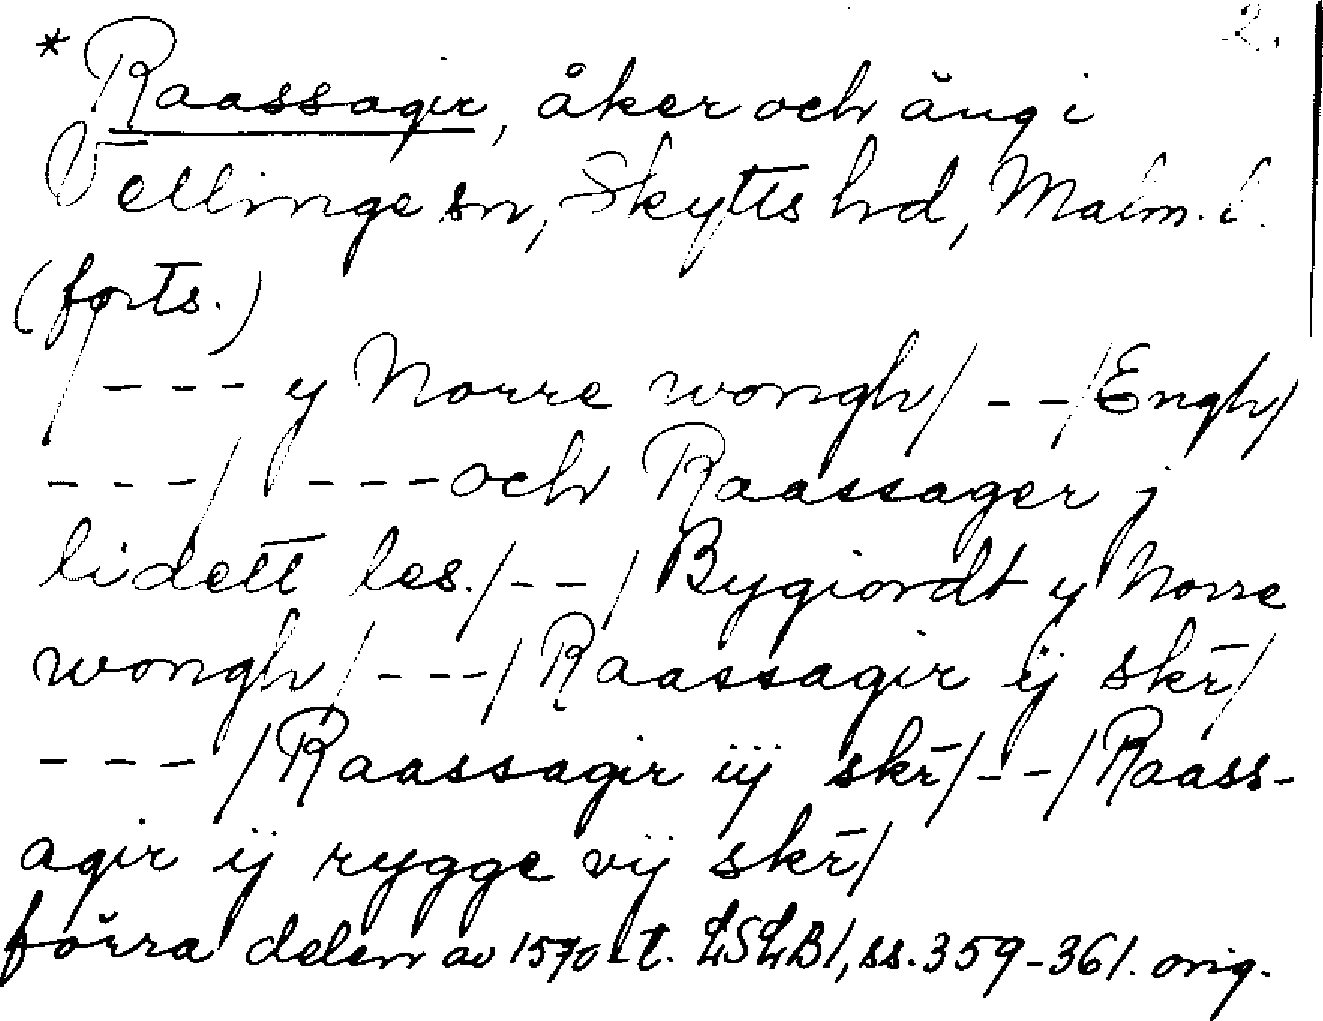 2.
* Raassagir, åker och äng i
Vellinge sn, Skytts hd, Malm. l.
(forts.)
/ - - - y Norre wongh/ - -/Engh/
- - -/ - - - och Raassager j
lidett les./- -/ Bygiordt y Norre
wongh/ - - -/ Raassagir ij skr̄/
- - - /Raassagir iij skr̄/- -/Raass-
agir ij rygge vij skr̄/
förra delen av 1570-t. LSLB1, ss. 359-361. orig.